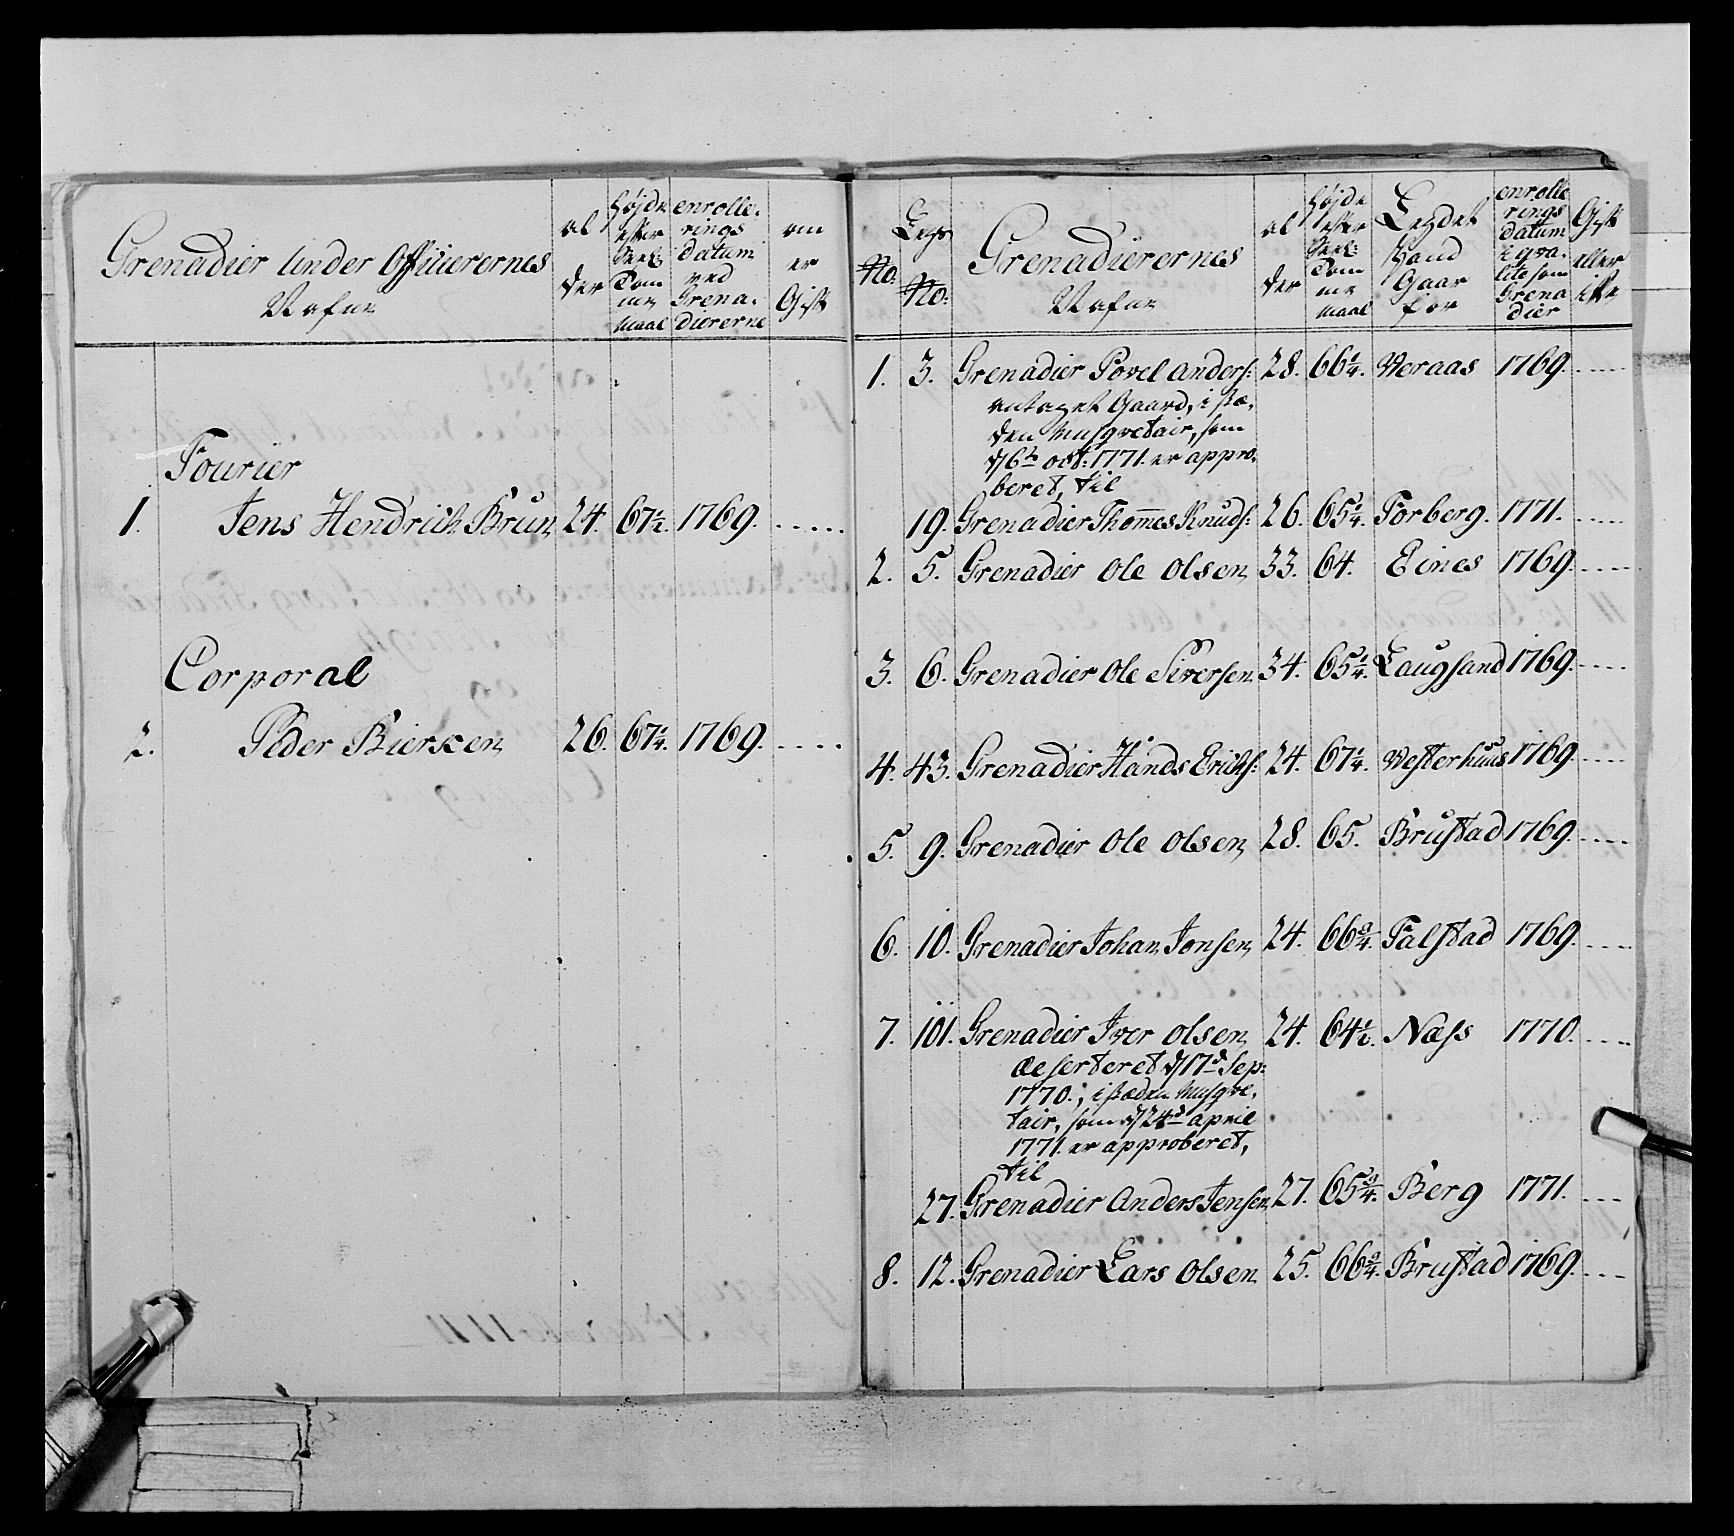 Grenadier Under Officierernes
Nafne
al
der
Højde
efter
Tom
me
Maal
enrolle-
rings
Datum
ved
Grena-
diererne
om
er
Gift
Fourier
1. Jens Hendrich Brun 24. 67½. 1769. .....
Corporal
2. Peder Biersen 26. 67¼. 1769. ....
No:
Legs
No:
Grenadierernes
Nafne
al
der
Højde
efter
Tom
me
Maal
Legdet
Hand
Gaar
for
enrolle
rings
Datum
eqva-
lite som
Grena
dier
Gift
eller
ikke
1. 3. Grenadier Povel anders: 28. 66¼. Weraas 1769. .....
antaget Gaard, i stæ-
den Musqvetair, som
d/6t oct: 1771. er appro-
beret, til
19. Grenadier Thom̅es Knuds: 26. 65¼. Forberg. 1771. .....
2. 5. Grenadier Ole Olsen 33. 64. Eines 1769. .....
3. 6. Grenadier Ole Siversen 34. 65¼. Laugsand 1769. ....
4. 43. Grenadier Hands Erichs: 24. 67¼. Westerhuus 1769. ....
5. 9. Grenadier Ole Olsen 28. 65. Brustad 1769. ....
6. 10. Grenadier Johan Jonsen 24. 66¾. Falstad 1769. ....
7. 101. Grenadier Iver Olsen 24. 64½. Næss 1770. ....
deserteret d/17d Sep:
1770., i stæden Musqve-
tair, som d/24d april
1771. er approberet,
til
27. Grenadier Anders Jensen 27. 65¾. Berg 1771. ....
8. 12. Grenadier Lars Olsen 25. 66¾. Brustad 1769. ....